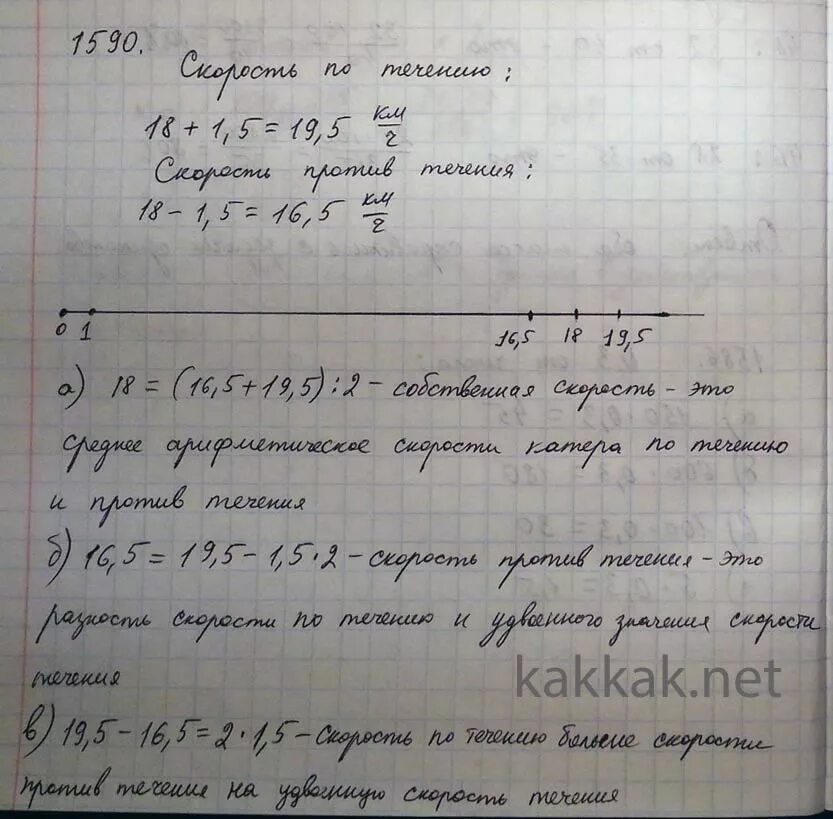 1590.
Скорость по течению:
18 + 1,5 = 19,5 км/ч
Скорость против течения:
18 - 1,5 = 16,5 км/ч
0 1 16,5 18 19,5
а) 18 = (16,5 + 19,5) : 2 - собственная скорость - это
среднее арифметическое скорости катера по течению
и против течения
б) 16,5 = 19,5 - 1,5 · 2 - скорость против течения - это
разность скорости по течению и удвоенного значения скорости
течения
kakkak.net
в) 19,5 - 16,5 = 2 · 1,5 - скорость по течению больше скорости
против течения на удвоенную скорость течения